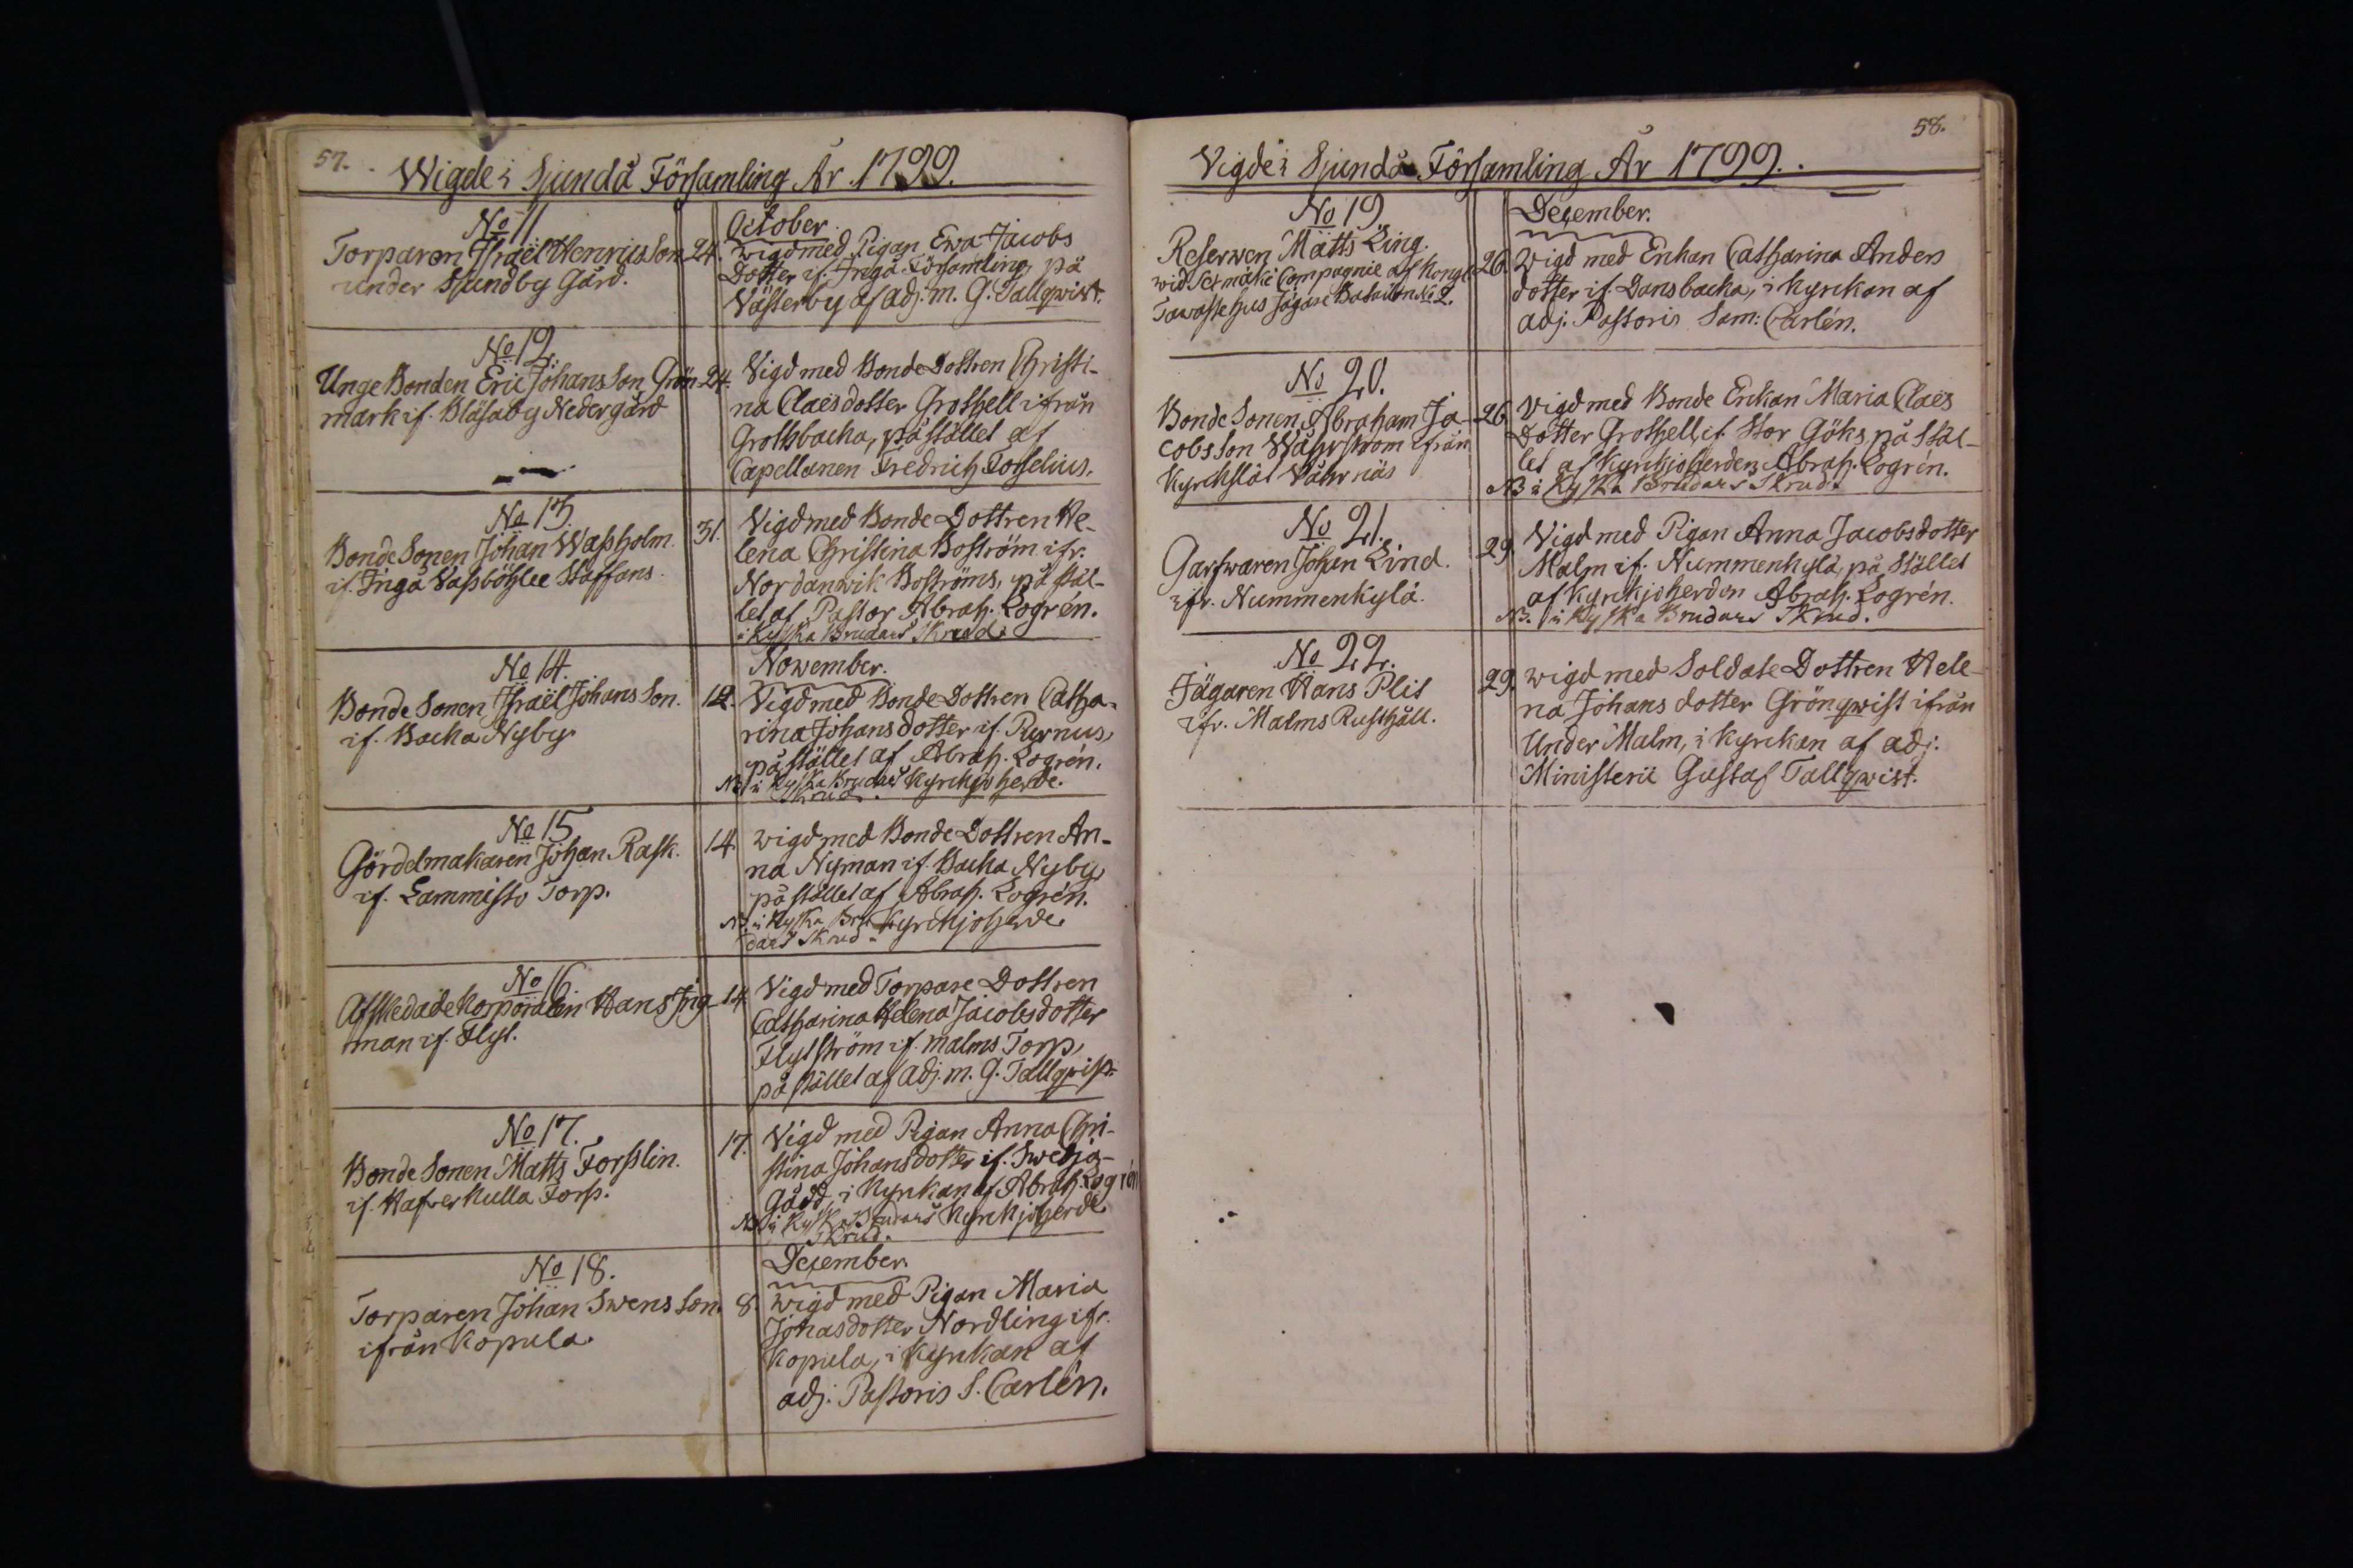 57.
Wigde i Sjundå Församling År 1799.
No 11
Torparen Israël Henricsson
under Sjundby Gård.
24.
October
wigd med Pigan Ewa Jacobs
Dotter if. Ingå Församling, på
Västerby af adj. m. G. Tallqwist.
No 12.
Unge Bonden Eric Johans Son Grön-
mark if. Bläsaby Nedergård
24.
Vigd med Bonde Dottren Christi-
na Claësdotter Grothell ifrån
Grottsbacka, på stället af
Capellanen Fredrich Forselius.
No 13.
Bonde Sonen Johan Wassholm
if. Ingå Vassböhlee Staffans.
31.
Vigd med Bonde Dottren He-
lena Christina Boström ifr.
Nordanwik Boströms, på stäl-
let af Pastor Abrah. Logrén.
i Kyska Brudars Skrud.
No 14.
Bonde Sonen Israël Johans Son.
if. Backa Nyby
12.
November.
Vigd med Bonde Dottren Catha-
rina Johansdotter if. Purnus,
på stället af Abrah. Logrén.
NB i Kyska Brudars Kyrckjoherde.
Skrud.
No 15
Gördelmakaren Johan Rask.
if. Lammisto Torp.
14.
wigd med Bonde Dottren An-
na Nyman if. Backa Nyby,
på stället af Abrah. Logrén.
NB. i Kyska Bru- Kyrckjoherde.
dars Skrud.
No 16.
Afskedade Korporalen Hans Jrig-
man if. Flyt.
14
Vigd med Torpare Dottren
Catharina Helena Jacobsdotter
Flytström if. malms Torp,
på stället af adj. m. G. Tallqvist.
No 17.
Bonde Sonen Matts Forsslin.
if. Hafverkulla Forss.
17.
Vigd med Pigan Anna Chri-
stina Johansdotter if. Swedja-
Gård, i Kyrkan af Abrah. Logrén
NB i Kyska Brudars Kyrckjoherde
Skrud.
No 18.
Torparen Johan Swens Son.
ifrån Kopula.
8.
December.
wigd med Pigan Maria
Johasdotter Nordling ifr.
Kopula, i Kyrkan af
adj. Pastoris S. Carlén.
58.
Vigde i Sjundå Församling År 1799.
No 19.
Reserwen Matts Ling.
wid Sexmäki Compagnie af Kongl.
Tawastehus Jägare Batailon No 2.
26.
December.
Vigd med Enkan Catharina Anders
dotter if. Dansbacka, i Kyrkan af
adj. Pastoris Sam: Carlén.
No 20.
Bonde Sonen Abraham Ja-
cobs Son Wåhrström ifrån
Kyrckslät Våhrnäs
26
Vigd med Bonde Enkan Maria Claës
Dotter Grothell, if. Stor Göks, på Stäl-
let af Kyrkjoherden Abrah. Logrén.
NB i Kyska Brudars Skrud.
No 21.
Garfwaren Johan Lind.
ifr. Nummenkylä.
29.
Vigd med Pigan Anna Jacobsdotter
Malm if. Nummenkylä, på Stället
af Kyrkjoherden Abrah. Logrén.
NB. i Kyska Brudars Skrud.
No 22.
Jägaren Hans Plit
ifr. Malms Rusthåll.
29.
wigd med Soldate Dottren Hele-
na Johans dotter Grönqwist ifrån
Under Malm, i Kyrkan af adj:
Ministerii Gustaf Tallqwist.